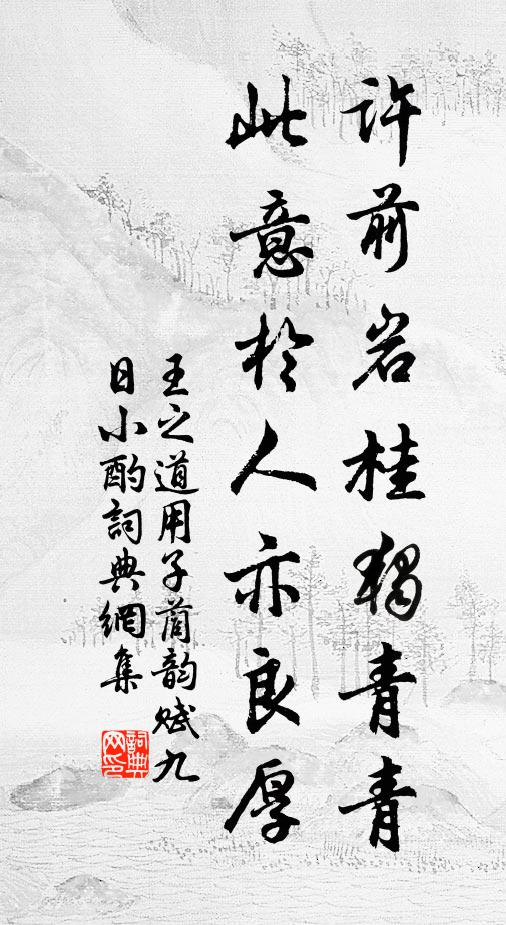 許前岩桂獨青青
此意於人亦良厚
王之道用子蕳韵賦九
日小酌詞典網集
詞典
网印